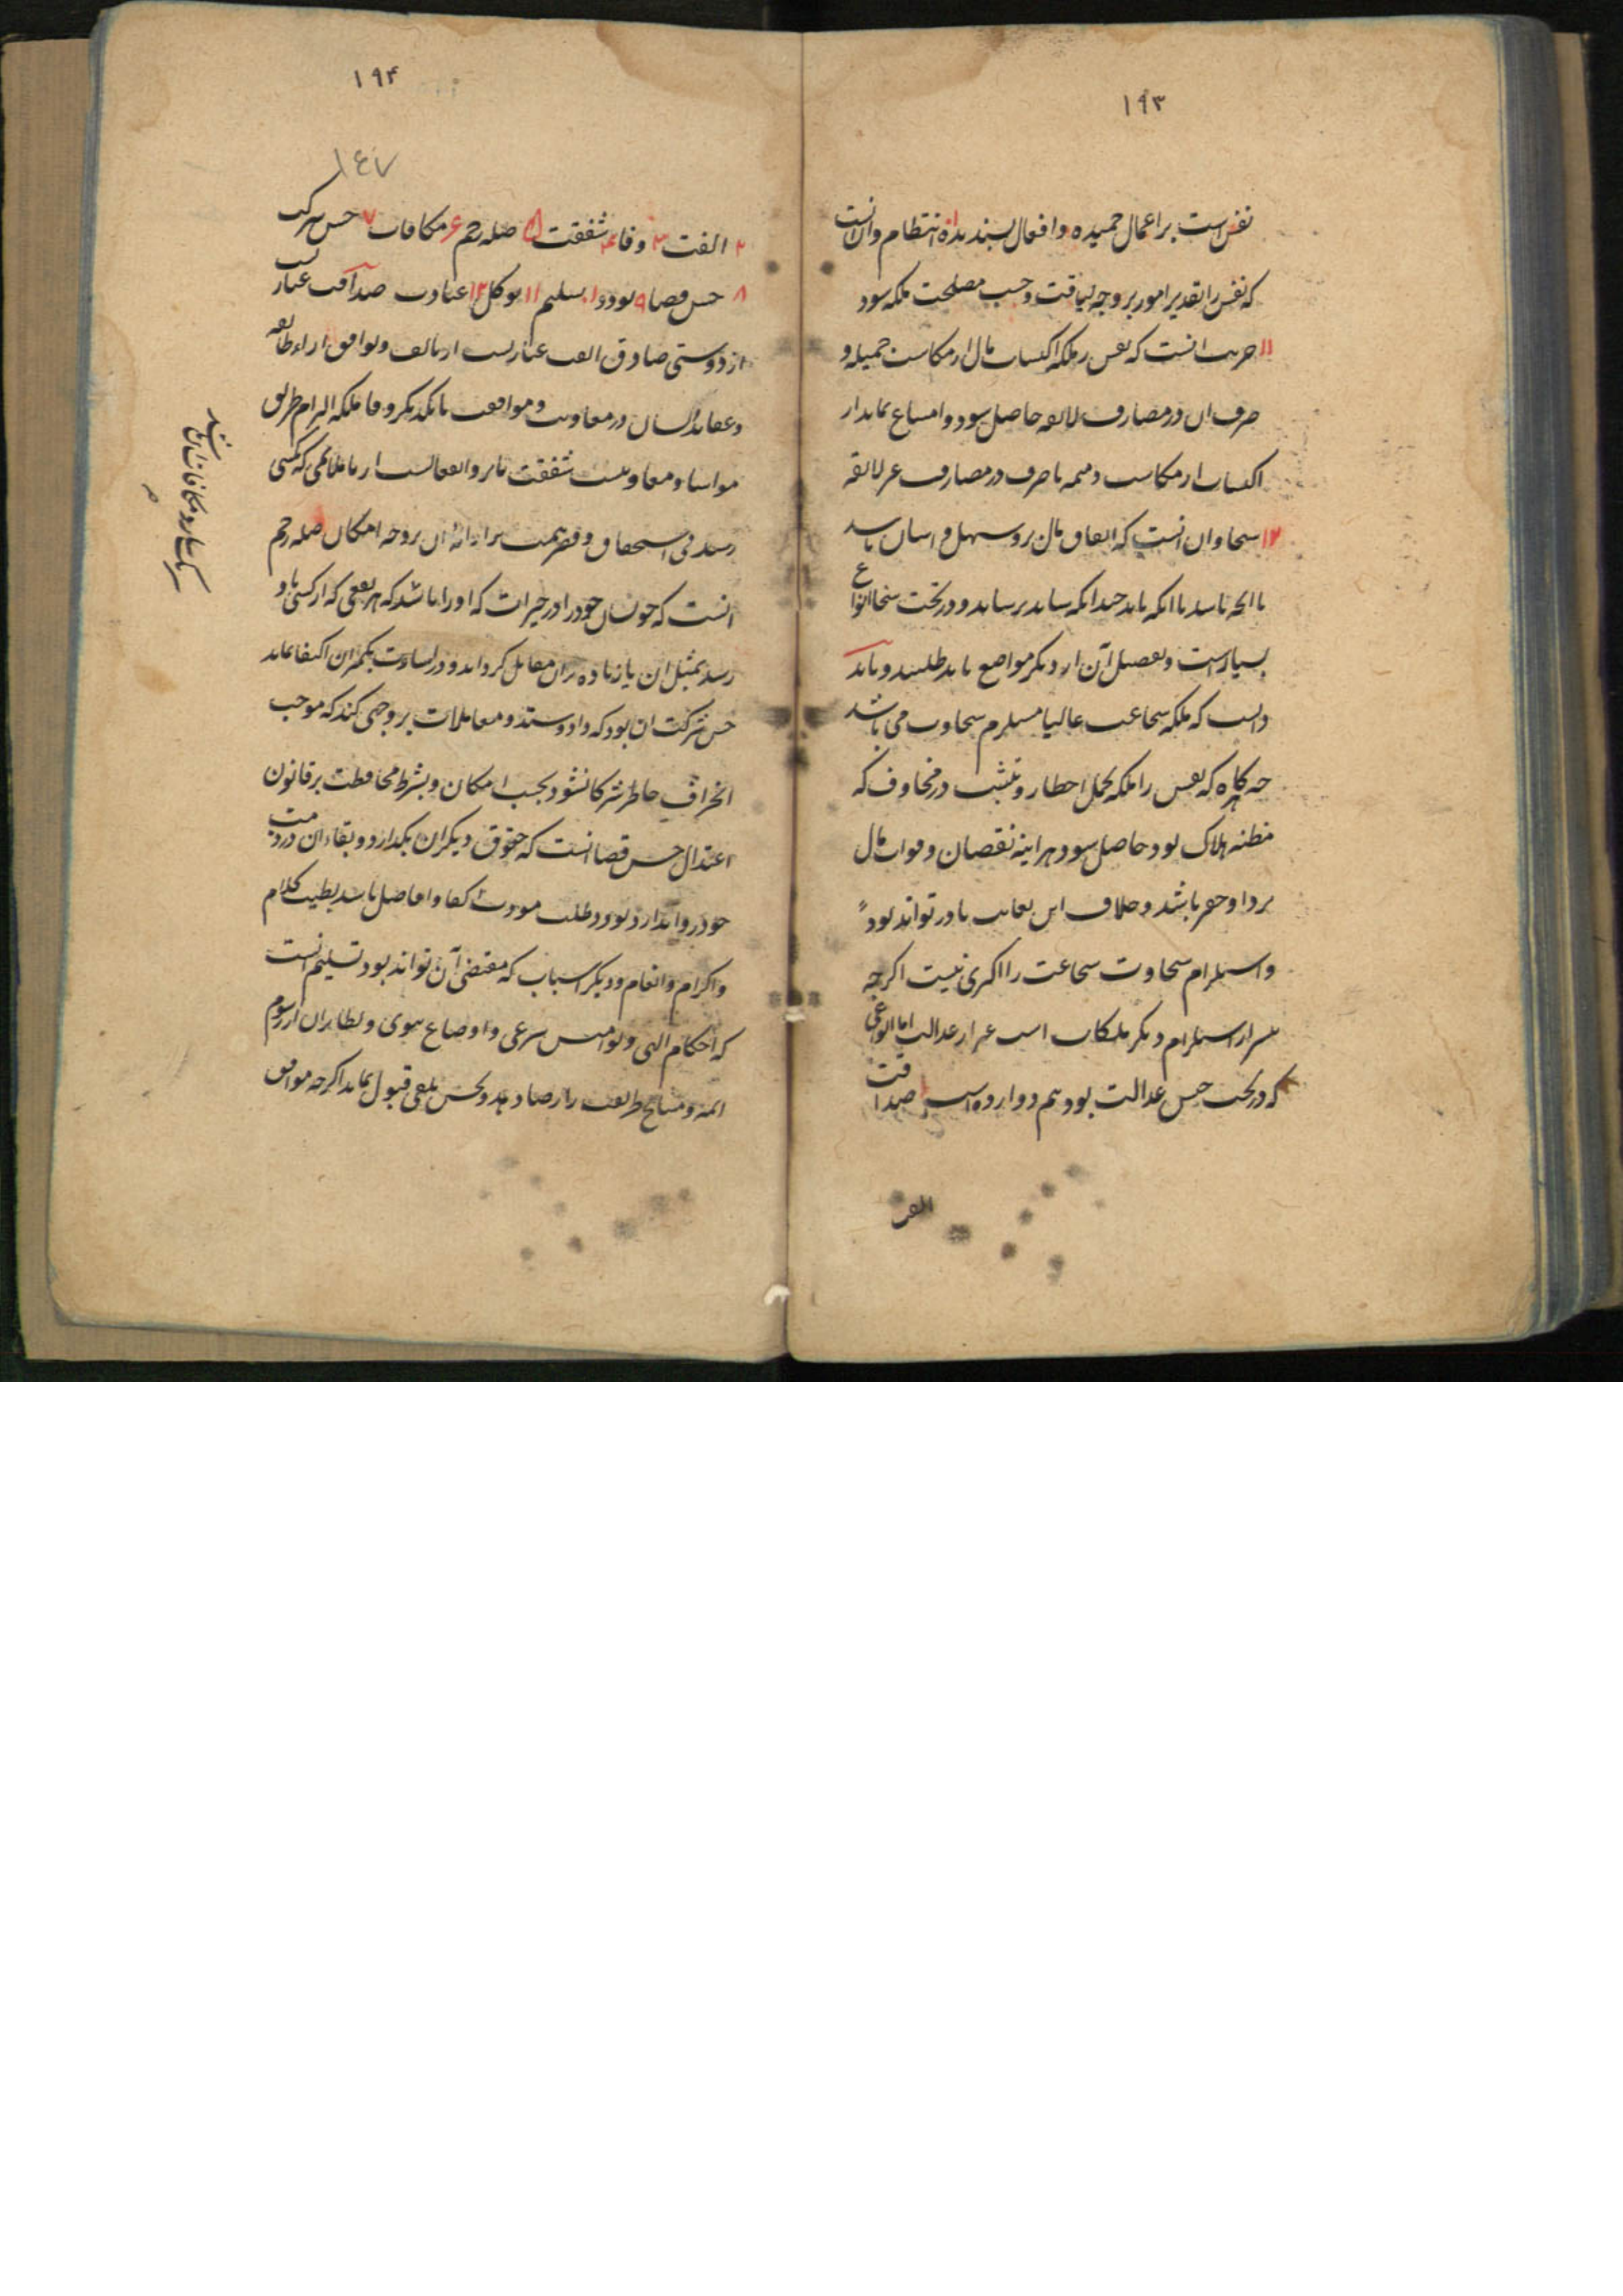 ۱۹۳
نفس است بر اعمال حمیده و افعال پسندیده ۱۰ انتظام و آن آنست
که نفس را تقدیر امور بر وجه لیاقت و حسب مصلحت ملکه شود
۱۱ حریت آنست که نفس را ملکه اکتساب مال از مکاسب جمیله و
صرف آن در مصارف لائقه حاصل شود و امتناع نماید از
اکتساب از مکاسب ذمیمه یا صرف در مصارف غیر لائقه
۱۲ سخا و آن آنست که انفاق مال برو سهل و آسان باشد
تا آنچه باشد با آنکه باید چندانکه شاید برساند و در تحت سخا انواع
بسیارست و تفصیل آن از دیگر مواضع باید طلبید و باید
دانست که ملکه شجاعت غالبا مستلزم سخاوت می باشد
چه هرگاه که نفس را ملکه تحمل اخطار و تثبت در مخاوف که
مظنه هلاک بود حاصل شود هر اینه نقصان و فوات مال
بر او حقیر باشد و خلاف این بغایت نادر تواند بود
و استلزام سخاوت شجاعت را اکثری نیست اگرچه
از استلزام دیگر ملکات است غیر از عدالت اما انواعی
که در تحت جنس عدالت بود هم دوازده است ۱ صداقت
۱۹۴
۱۴۷
۲ الفت ۳ وفا ۴ شفقت ۵ صله رحم ۶ مکافات ۷ حسن شرکت
۸ حسن قضا ۹ تودد ۱۰ تسلیم ۱۱ توکل ۱۲ عبادت صداقت عبارتست
از دوستی صادق الفت عبارتست از تالف و توافق آراء طایفه
و عقاید ایشان در معاونت و موافقت با یکدیگر وفا ملکه التزام طریق
مواسا و معاونتست شفقت تاثر و انفعالست از ناملائمی که کسی
رسد بی استحقاق و قصر همت بر ازاله آن بر وجه امکان صله رحم
آنست که خویشان خود را در خیرات که او را باشد مکافات شریک سازد و مکافات آن باشد که هر نفعی که از کسی باو
رسد بمثل آن یا زیاده بران مقابل گرداند و در اساءت بکمتر ازان اکتفا نماید
حسن شرکت آن بود که داد و ستد و معاملات بر وجهی کند که موجب
انحراف خاطر شرکا نشود بحسب امکان و بشرط محافظت بر قانون
اعتدال حسن قضا آنست که حقوق دیگران بگذارد و بقاء آن در ذمت
خود روا ندارد تودد طلب مودت اکفا و افاضل باشد بطیب کلام
و اکرام و انعام و دیگر اسباب که مقتضی آن تواند بود تسلیم آنست
که احکام الهی و نوامیس شرعی و اوضاع نبوی و نظایر آن از رسوم
ائمه و مشایخ طریقت را رضا دهد و بحسن تلقی قبول نماید اگرچه موافق